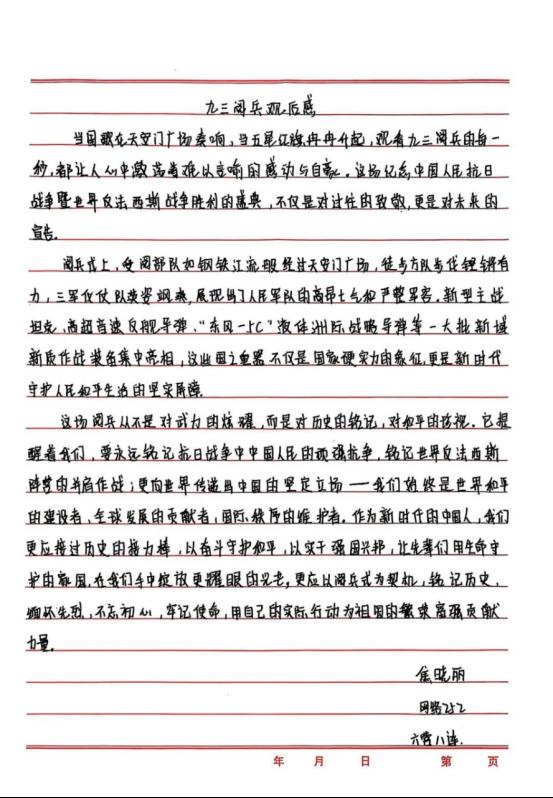 九三阅兵观后感
当国歌在天安门广场奏响，当五星红旗冉冉升起，观看九三阅兵的每一
秒，都让人心中激荡着难以言喻的感动与自豪。这场纪念中国人民抗日
战争暨世界反法西斯战争胜利的盛典，不仅是对过往的致敬，更是对未来的
宣告。
阅兵式上，受阅部队如钢铁江流般经过天安门广场，徒步方队步伐铿锵有
力，三军仪仗队英姿飒爽，展现出了人民军队的高昂士气和严整军容。新型主战
坦克、高超音速反舰导弹、“东风-5C”液体洲际战略导弹等一大批新域
新质作战装备集中亮相，这些国之重器不仅是国家硬实力的象征，更是新时代
守护人民和平生活的坚实屏障。
这场阅兵从不是对武力的炫耀，而是对历史的铭记，对和平的珍视。它提
醒着我们，要永远铭记抗日战争中中国人民的顽强抗争，铭记世界反法西斯
阵营的并肩作战；更向世界传递出中国的坚定立场——我们始终是世界和平
的建设者、全球发展的贡献者、国际秩序的维护者。作为新时代的中国人，我们
更应接过历史的接力棒，以奋斗守护和平，以实干强国兴邦，让先辈们用生命守
护的家国，在我们手中绽放更耀眼的光芒，更应以阅兵式为契机，铭记历史、
缅怀先烈，不忘初心，牢记使命，用自己的实际行动为祖国的繁荣富强贡献
力量。
焦晓丽
网络252
六营八连.
年 月 日 第 页